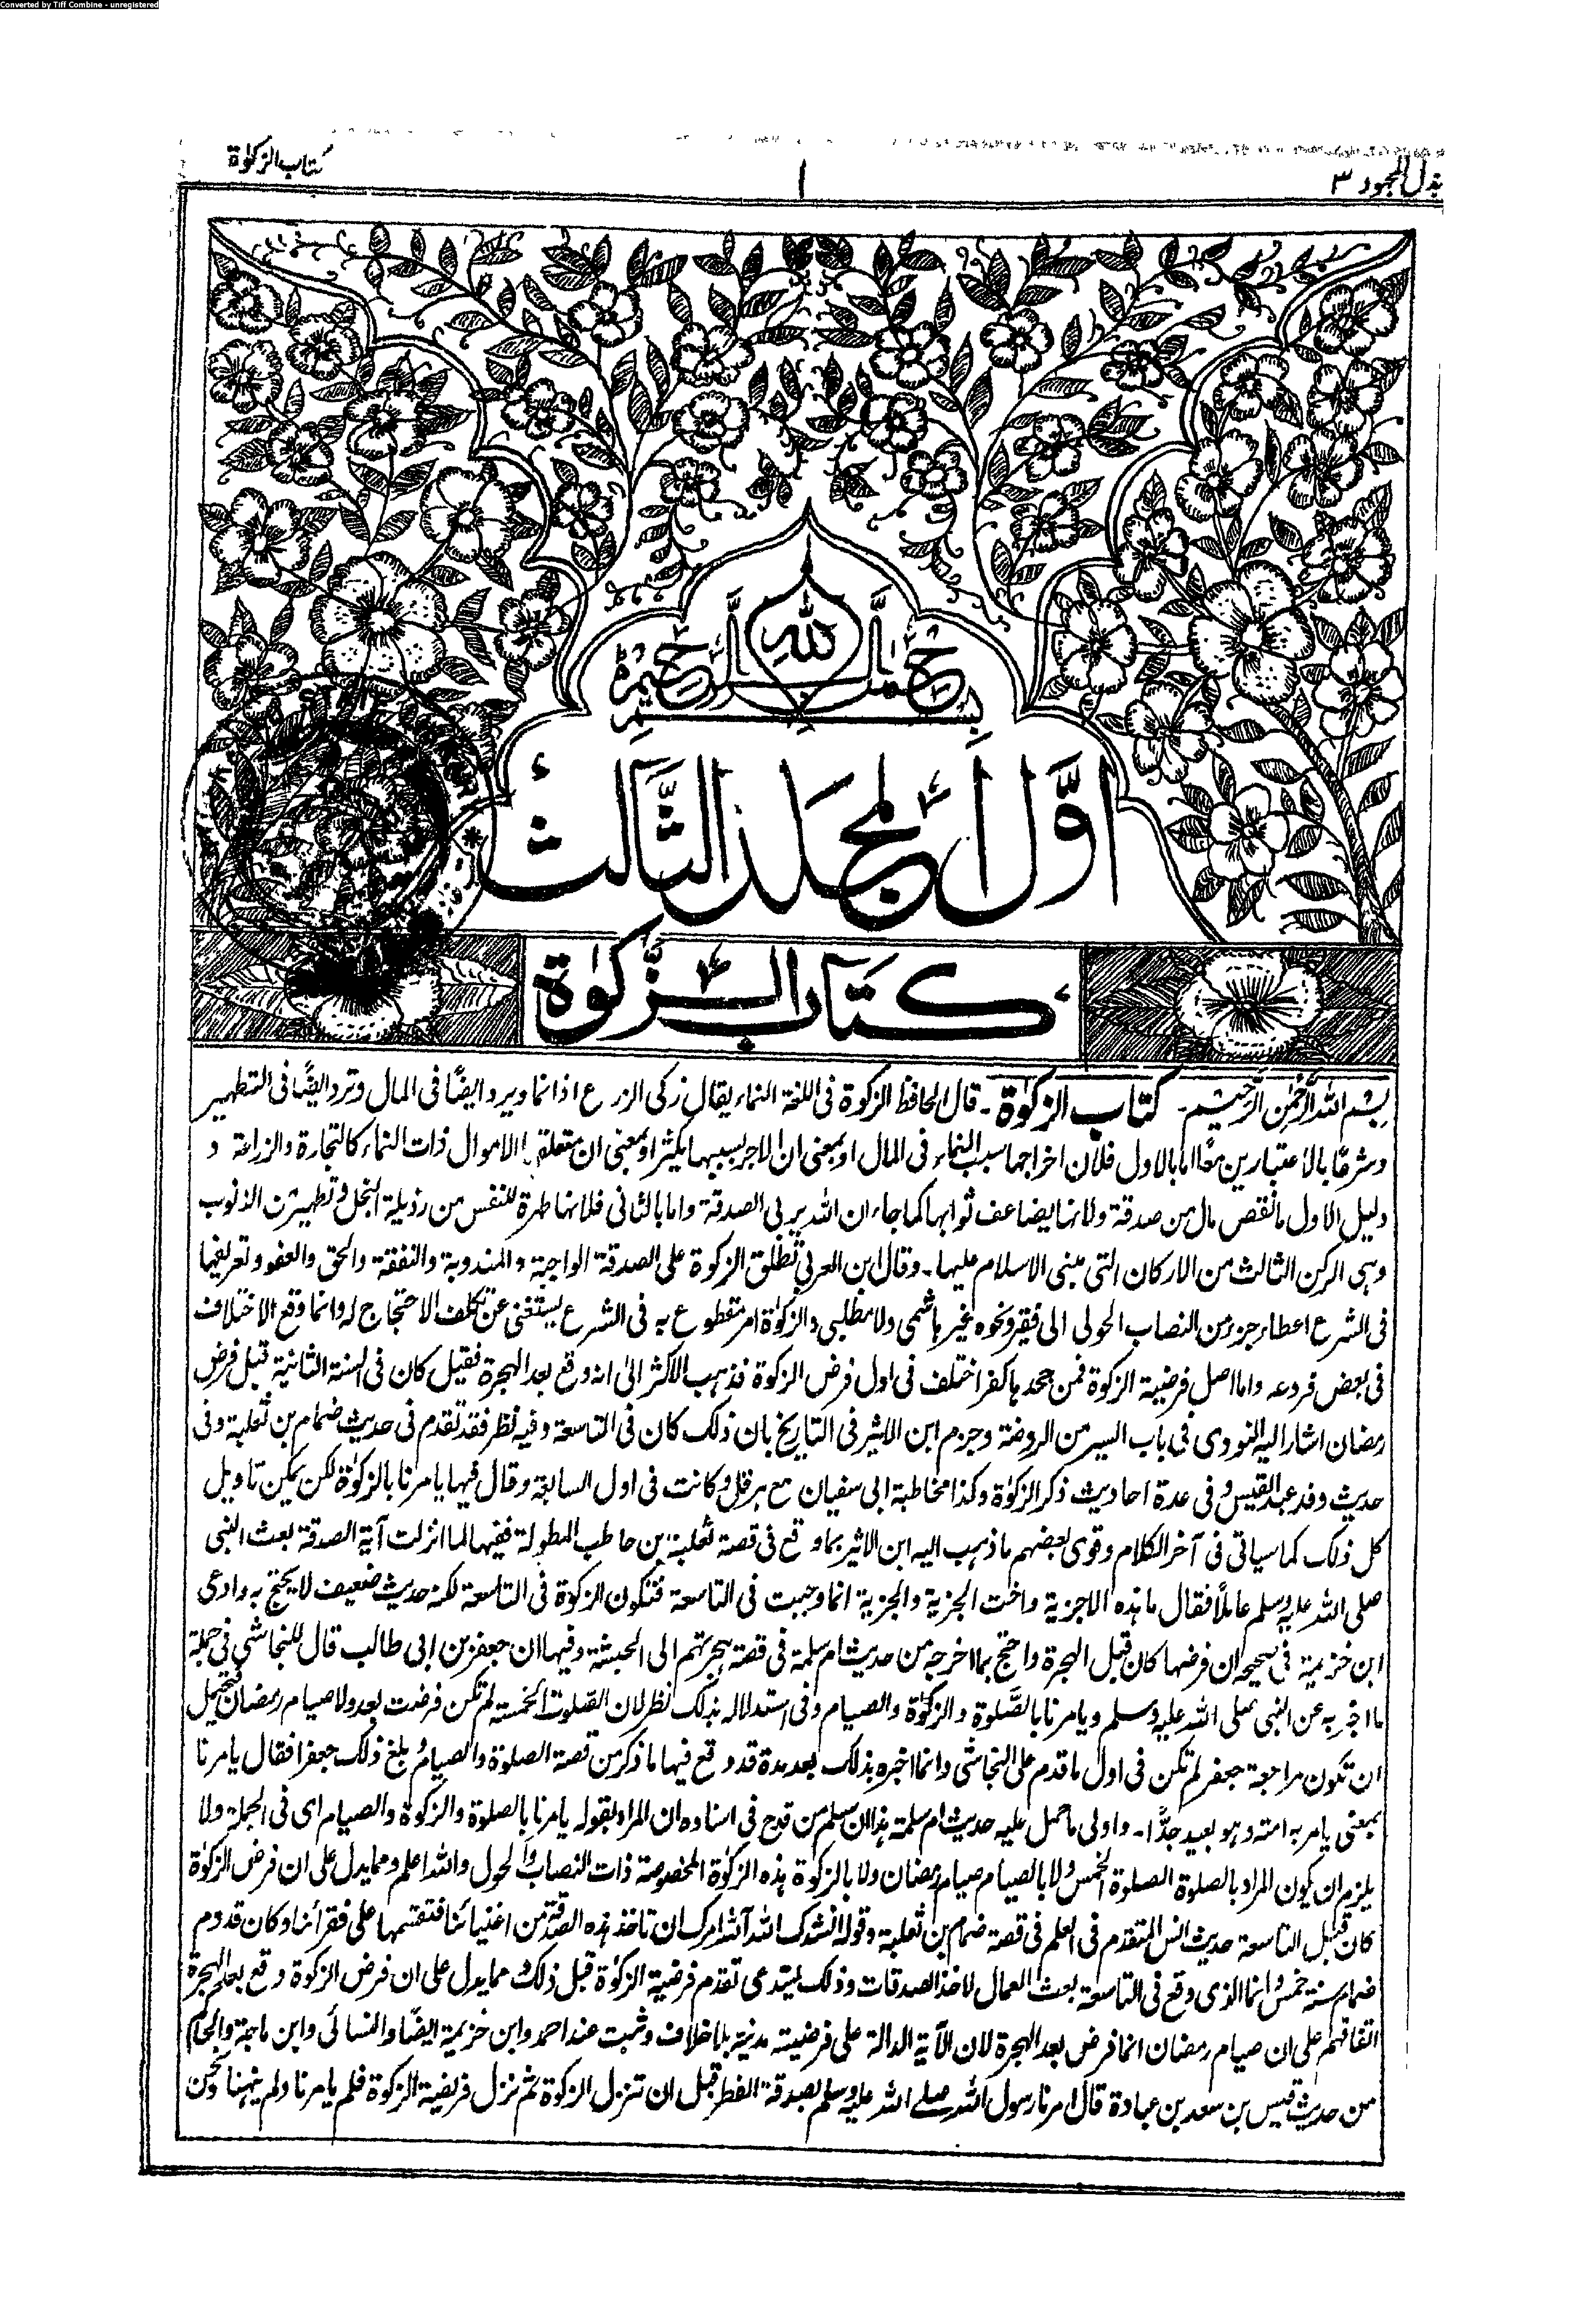 Converted by Tiff Combine - unregistered
بذل المجهود ٣
١
كتاب الزكوٰة
بسم الله الرحمن الرحيم
اول المجلد الثالث
كتاب الزكوٰة
بسم الله الرحمن الرحيم - كتاب الزكوٰة - قال الحافظ الزكوة فى اللغة النماء يقال زكى الزرع اذا نما ويرد ايضًا فى المال وترد ايضًا فى التطهير
وشرعًا بالاعتبارين معًا اما بالاول فلان اخراجها سبب النماء فى المال او بمعنى ان الاجر بسببها يكثر او بمعنى ان متعلقها الاموال ذات النماء كالتجارة والزراعة و
دليل الاول ما نقص مال من صدقة ولانها يضاعف ثوابها كما جاء ان الله يربى الصدقة واما بالثانى فلانها طهرة للنفس من رذيلة البخل وتطهير من الذنوب
وهى الركن الثالث من الاركان التى بنى الاسلام عليها - وقال ابن العربى تطلق الزكوة على الصدقة الواجبة والمندوبة والنفقة والحق والعفو وتعريفها
فى الشرع اعطاء جزء من النصاب الحولى الى فقير ونحوه غير هاشمى ولا مطلبى والزكوٰة امر مقطوع به فى الشرع يستغنى عن تكلف الاحتجاج له وانما وقع الاختلاف
فى بعض فروعه واما اصل فرضية الزكوة فمن جحدها كفر اختلف فى اول فرض الزكوة فذهب الاكثر الى انه وقع بعد الهجرة فقيل كان فى السنة الثانية قبل فرض
رمضان اشار اليه النووى فى باب السير من الروضة وجزم ابن الاثير فى التاريخ بان ذلك كان فى التاسعة وفيه نظر فقد تقدم فى حديث ضمام بن ثعلبة وفى
حديث وفد عبد القيس وفى عدة احاديث ذكر الزكوٰة وكذا مخاطبة ابى سفيان مع هرقل وكانت فى اول السابعة وقال فيها يامرنا بالزكوٰة لكن يمكن تاويل
كل ذلك كما سياتى فى آخر الكلام وقوى بعضهم ما ذهب اليه ابن الاثير بما وقع فى قصة ثعلبة بن حاطب المطولة ففيها لما انزلت آية الصدقة بعث النبى
صلى الله عليه وسلم عاملًا فقال ما هذه الا جزية واخت الجزية والجزية انما وجبت فى التاسعة فتكون الزكوة فى التاسعة لكنه حديث ضعيف لا يحتج به وادعى
ابن خزيمة فى صحيحه ان فرضها كان قبل الهجرة واحتج بما اخرجه من حديث ام سلمة فى قصة هجرتهم الى الحبشة وفيها ان جعفر بن ابى طالب قال للنجاشى فى جملة
ما اخبر به عن النبى صلى الله عليه وسلم ويامرنا بالصلوة والزكوٰة والصيام وفى استدلاله بذلك نظر لان الصلوت الخمسة لم تكن فرضت بعد ولا صيام رمضان فيحتمل
ان تكون مراجعة جعفر لم تكن فى اول ما قدم على النجاشى وانما اخبره بذلك بعد مدة قد وقع فيها ما ذكر من قصة الصلوة والصيام وبلغ ذلك جعفرا فقال يامرنا
بمعنى يامر به امته وهو بعيد جدًّا - واولى ما حمل عليه حديث ام سلمة هذا ان سلم من قدح فى اسناده ان المراد بقوله يامرنا بالصلوة والزكوة والصيام اى فى الجملة ولا
يلزم ان يكون المراد بالصلوة الصلوة الخمس ولا بالصيام صيام رمضان ولا بالزكوة هذه الزكوٰة المخصوصة ذات النصاب والحول والله اعلم ومما يدل على ان فرض الزكوٰة
كان قبل التاسعة حديث انس المتقدم فى العلم فى قصة ضمام بن ثعلبة وقوله انشدك الله آلله امرك ان تاخذ هذه الصدقة من اغنيائنا فتقسمها على فقرائنا وكان قدوم
ضمام سنة خمس وانما الذى وقع فى التاسعة بعث العمال لاخذ الصدقات وذلك يستدعى تقدم فرضية الزكوٰة قبل ذلك ومما يدل على ان فرض الزكوة وقع بعد الهجرة
اتفاقهم على ان صيام رمضان انما فرض بعد الهجرة لان الآية الدالة على فرضيته مدنية بلا خلاف وثبت عند احمد وابن خزيمة ايضًا والنسائى وابن ماجة والحاكم
من حديث قيس بن سعد بن عبادة قال امرنا رسول الله صلى الله عليه وسلم بصدقة الفطر قبل ان تنزل الزكوة ثم نزل فريضة الزكوة فلم يامرنا ولم ينهنا ونحن